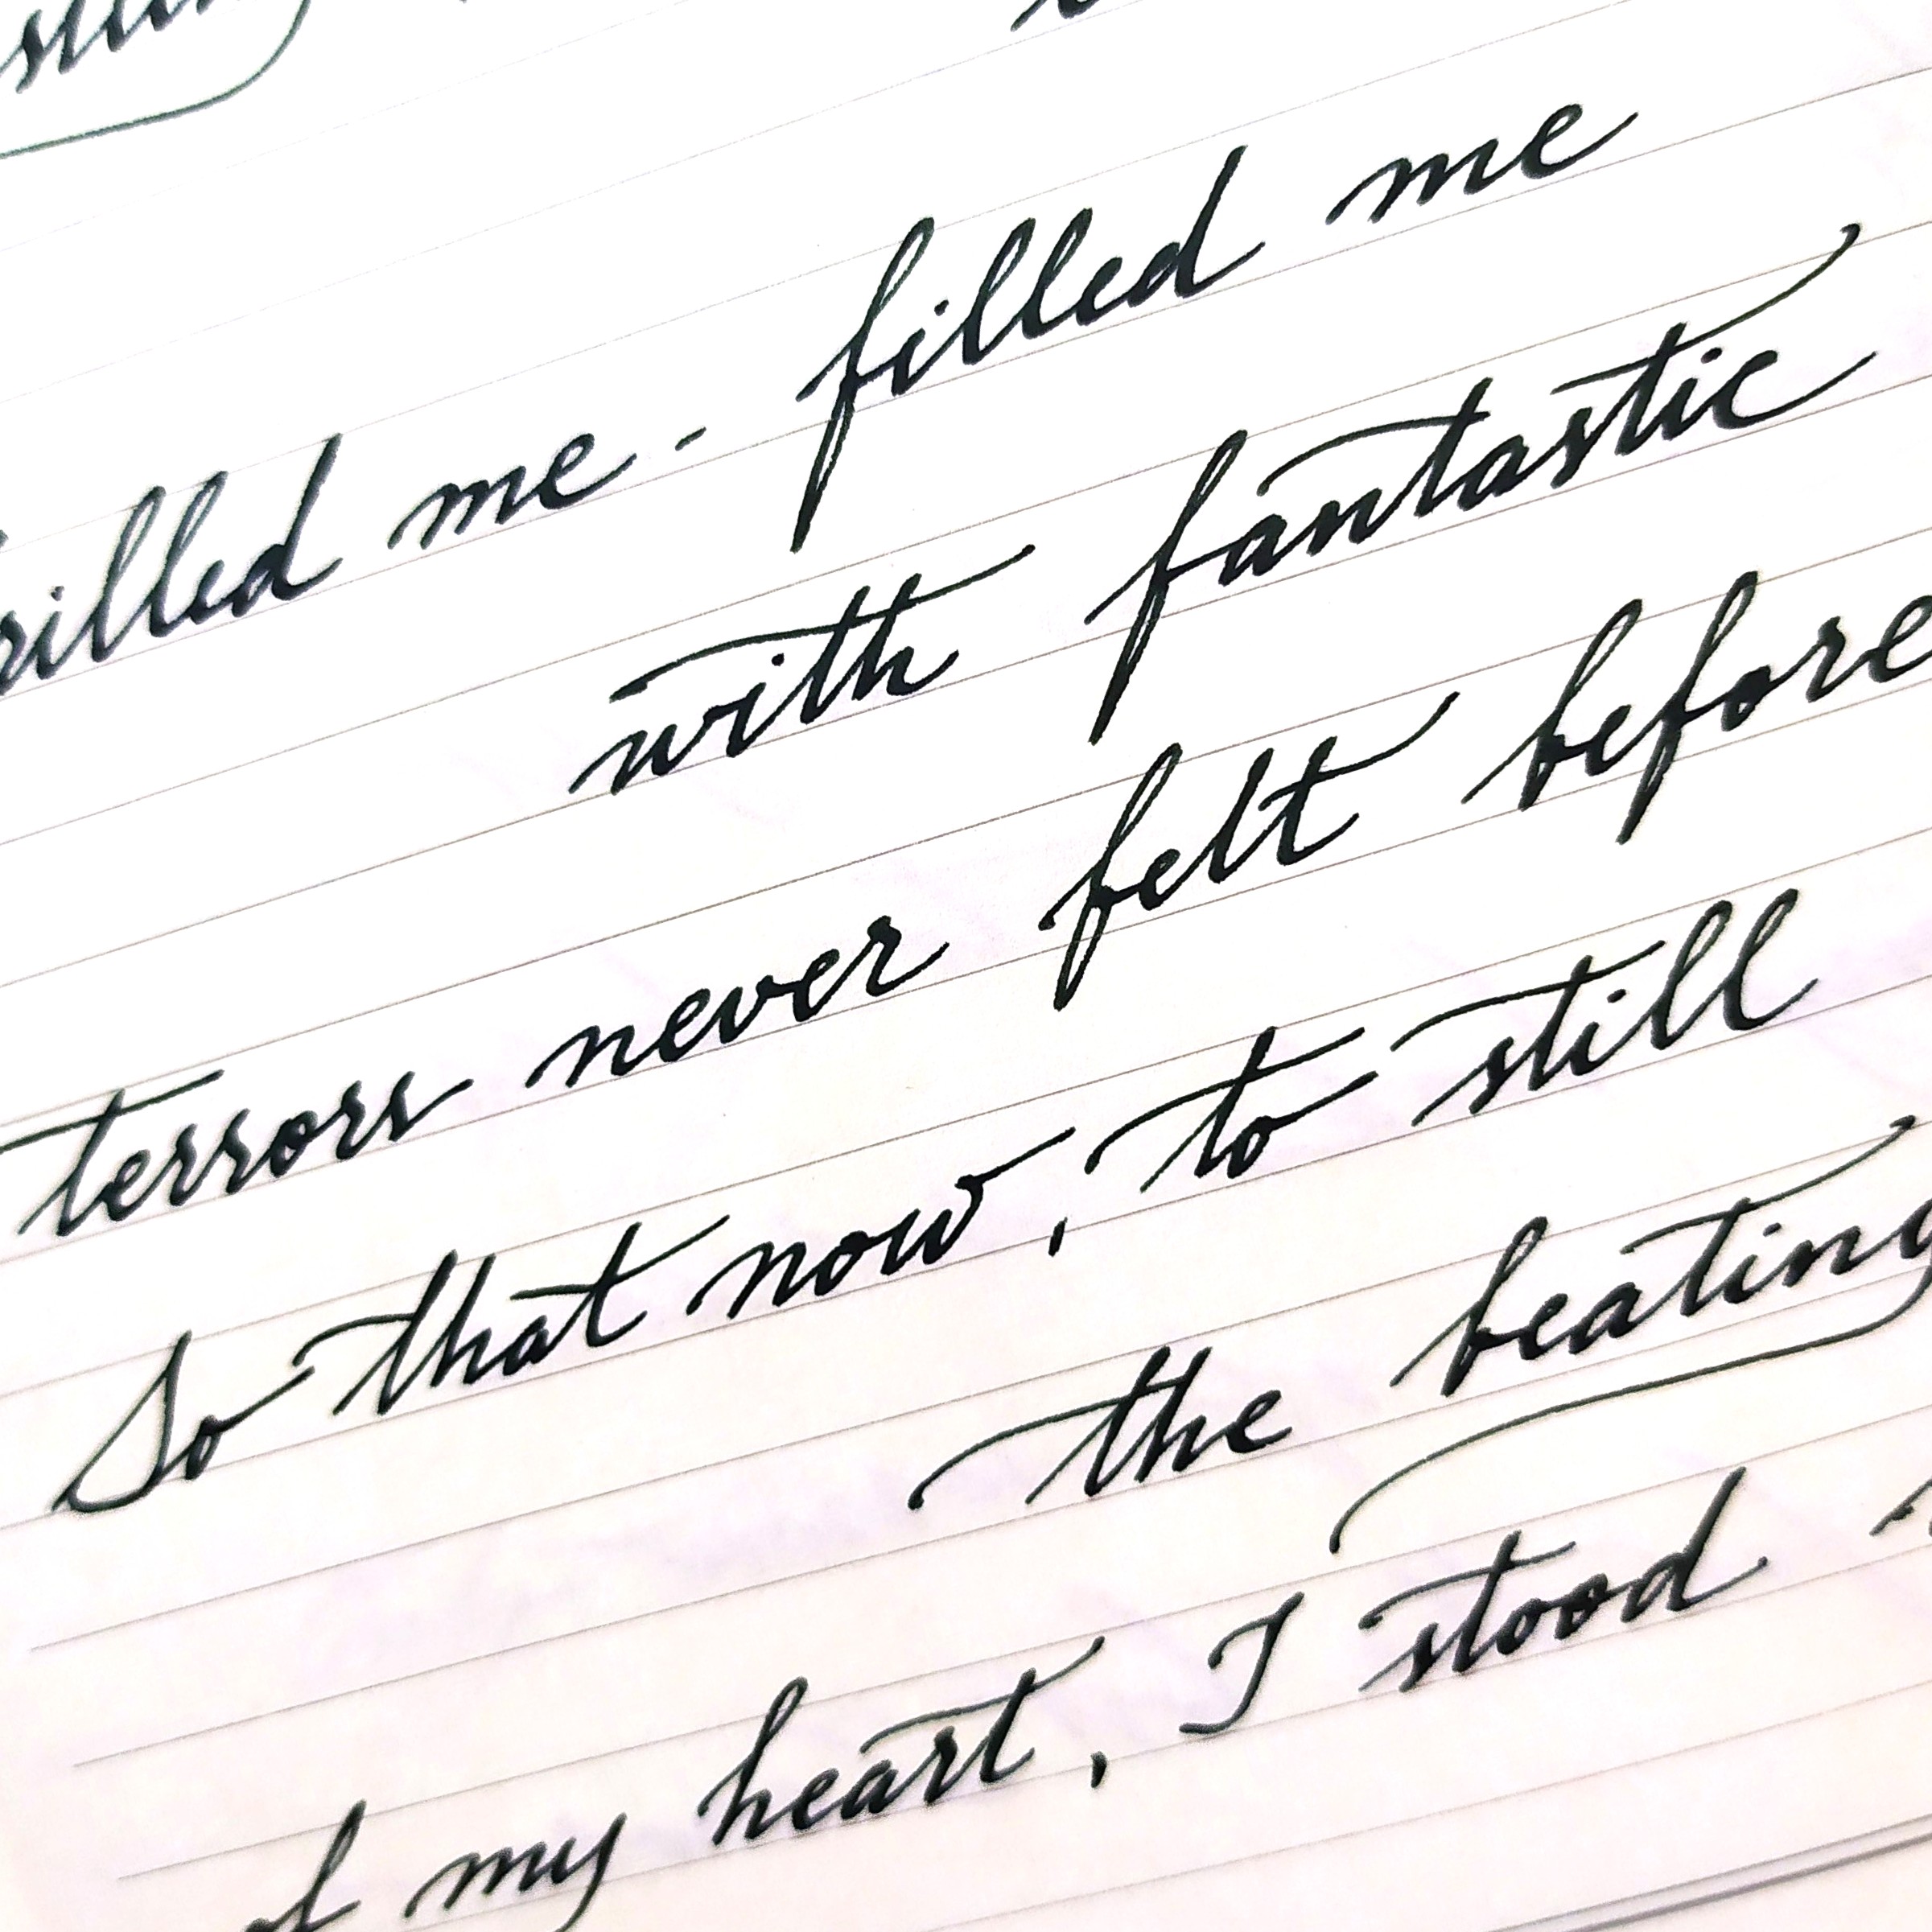 rilled me - filled me
with fantastic
terrors never felt before
So that now, to still
the beating
of my heart, I stood